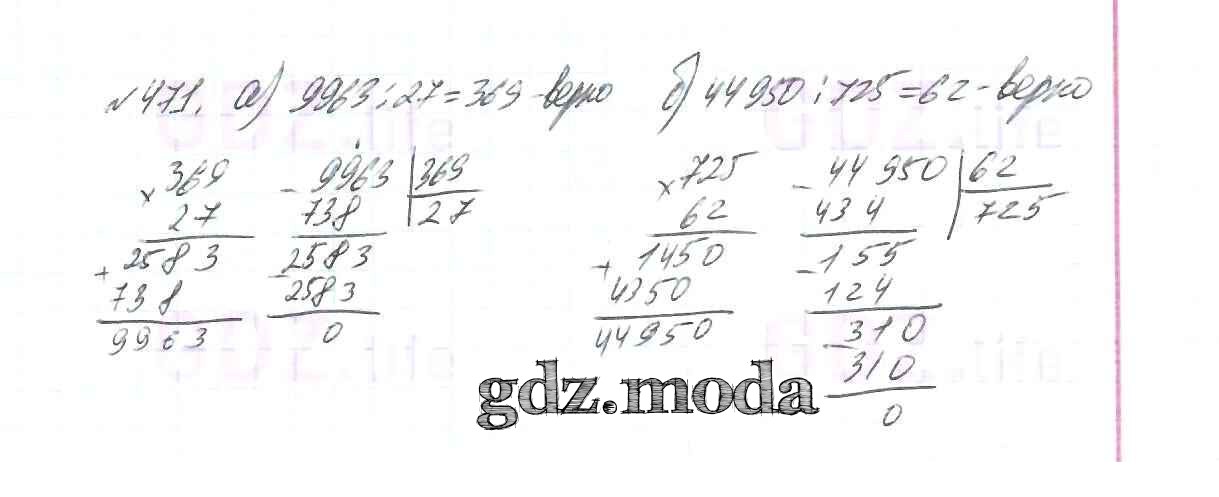 №471. а) 9963 : 27 = 369 - верно б) 44950 : 725 = 62 - верно
× 369
27
+ 2583
738
9963
- 9963 | 369
738 27
- 2583
2583
0
× 725
62
+ 1450
4350
44950
- 44950 | 62
434 725
- 155
124
- 310
310
0
gdz.moda